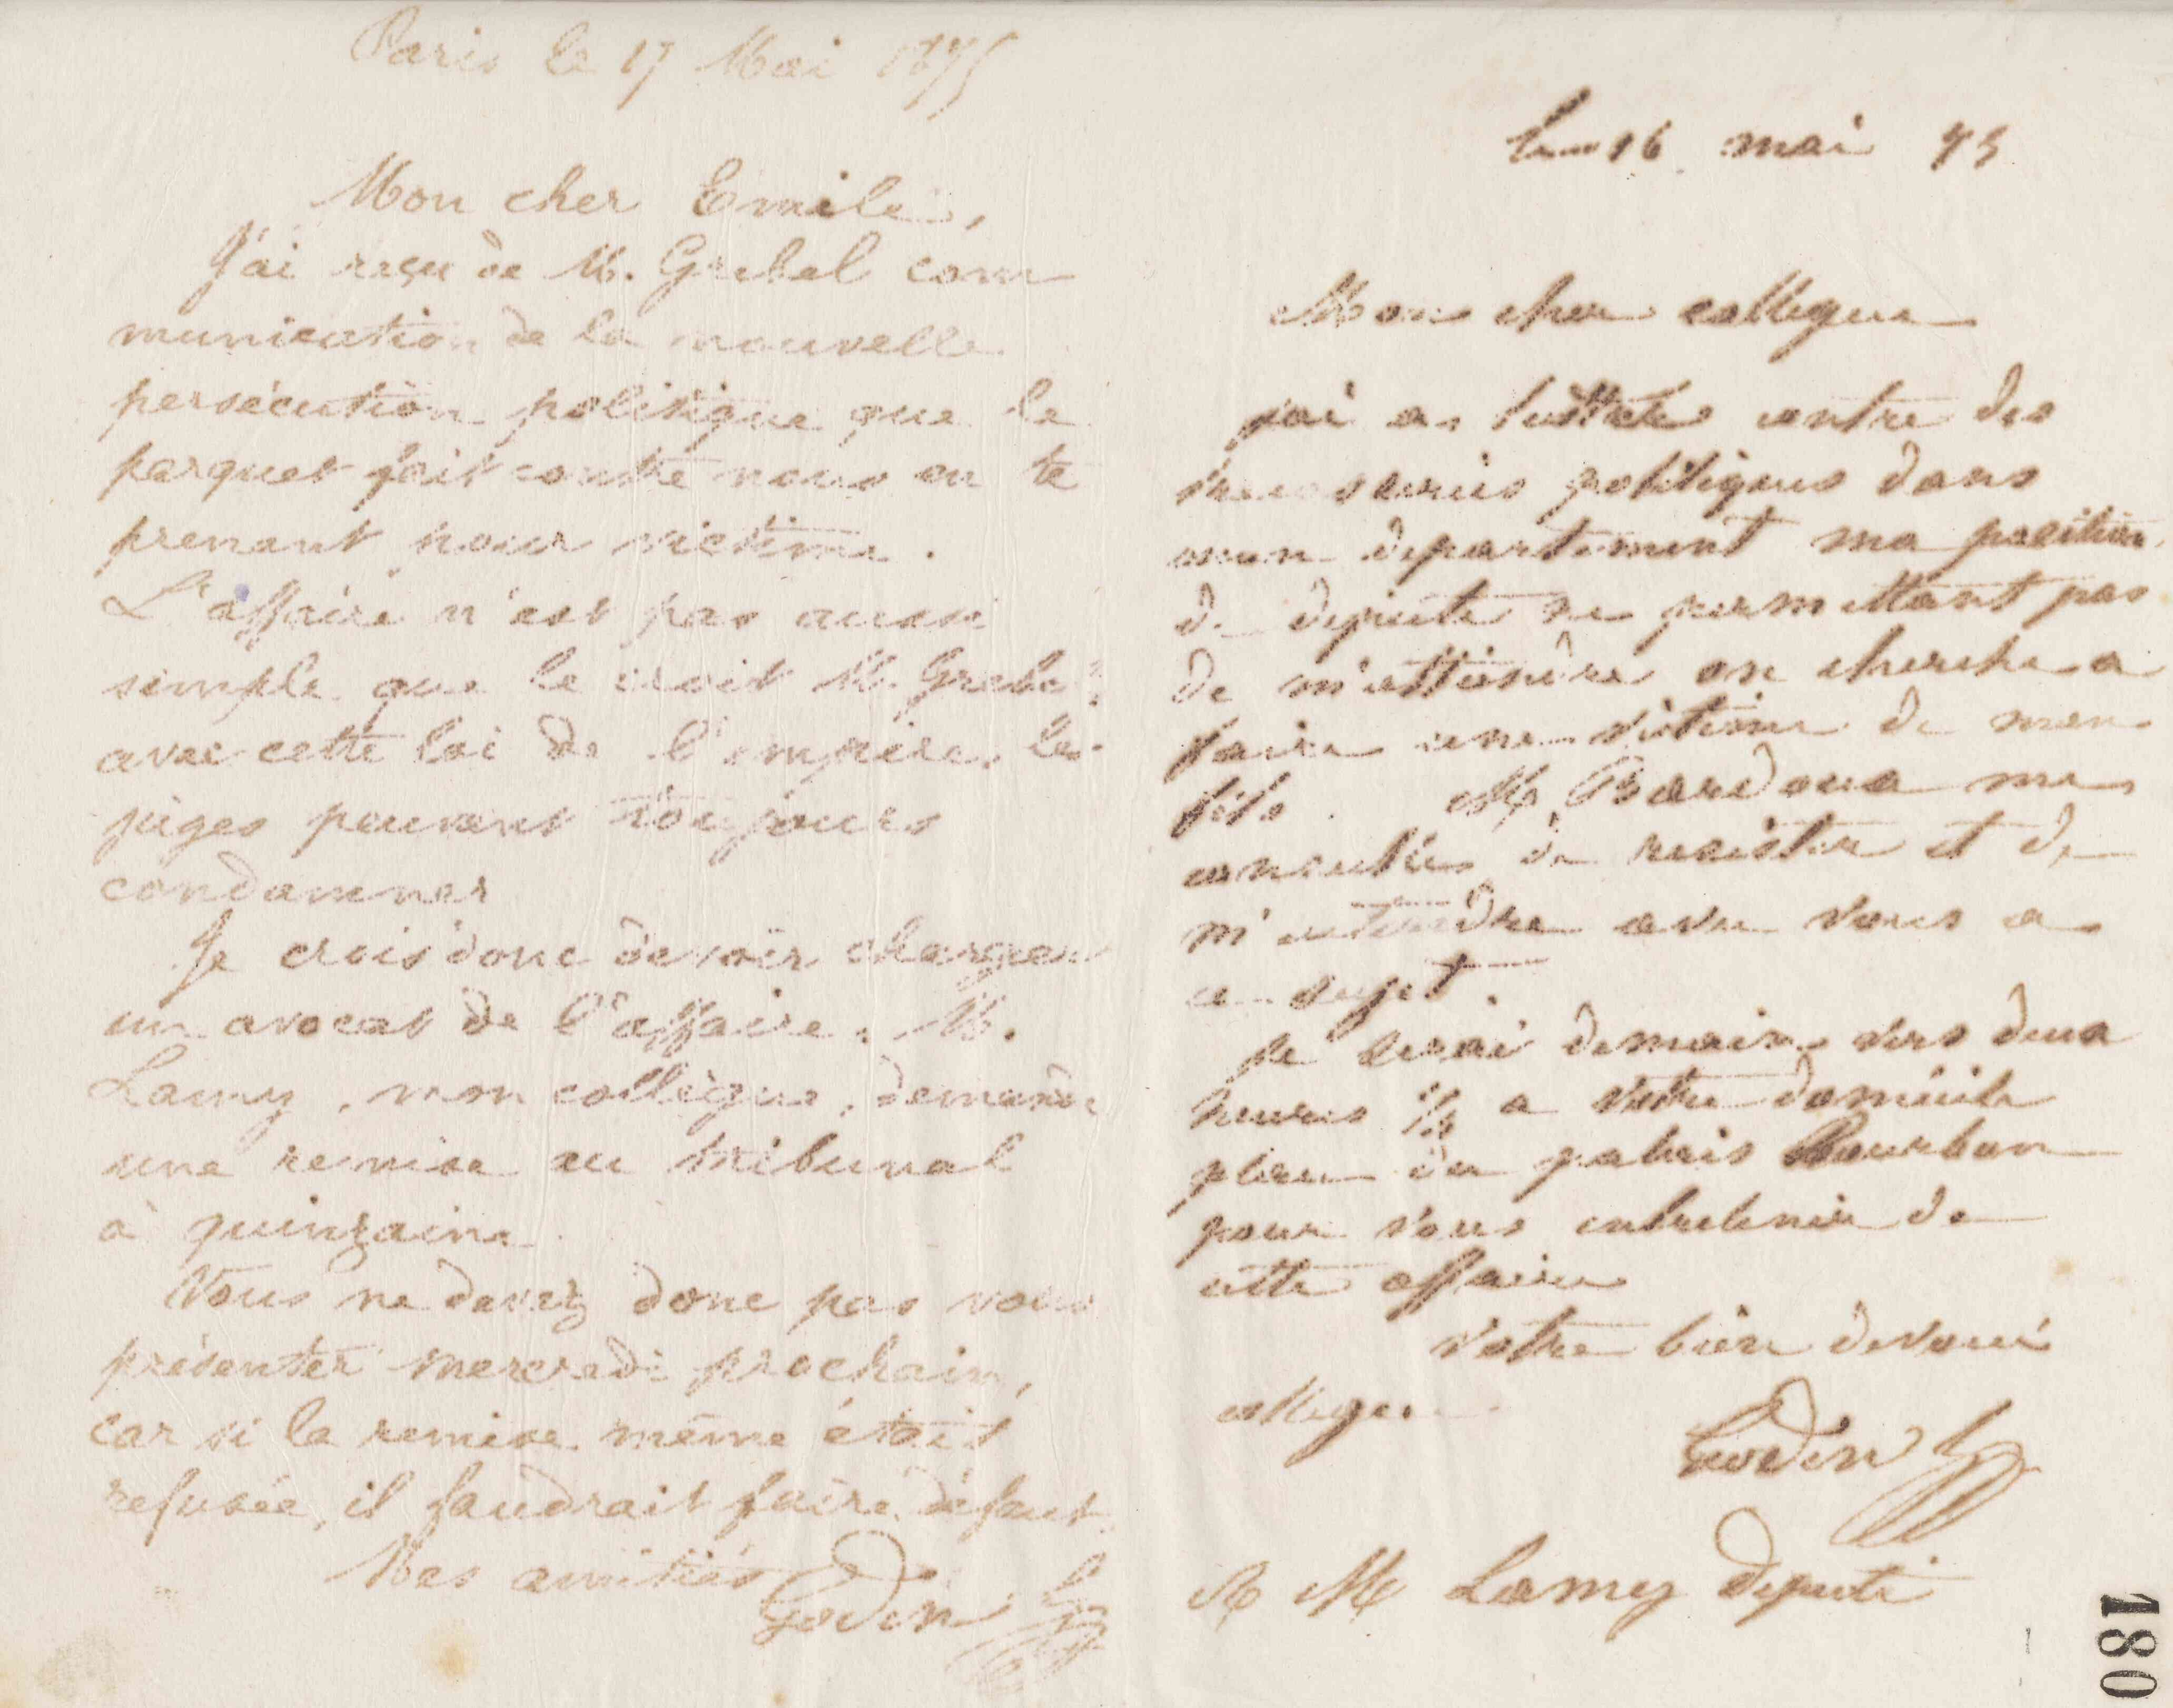 Paris le 17 Mai 1875
Mon cher Emile,
J'ai reçu de M. Grebel com
munication de la nouvelle
persécution politique que le
parquet fait contre nous en te
prenant pour victime.
L'affaire n'est pas aussi
simple que le croit M. Grebel;
avec cette loi de l'empire, les
juges peuvent toujours
condamner
Je crois donc devoir charger
un avocat de l'affaire. M.
Lamy, mon collègue, demande
une remise au tribunal
à quinzaine
Vous ne devez donc pas vous
présenter mercredi prochain,
car si la remise même était
refusée, il faudrait faire défaut.
Mes amitiés
Godin
16 mai 75
Mon cher collegue
j'ai a lutter contre des
politiques dans
mon departement ma position
de deputé ne permettant pas
de m'atteindre on cherche a
faire une victime de mon
fils. M Bardoux me
conseille de resister et de
m'entendre avec vous a
ce sujet.
je serai demain vers deux
heures 1/2 a votre domicile
place du palais Bourbon
pour vous entretenir de
cette affaire
votre bien devoué
collegue
Godin
A M Lamy deputé
180